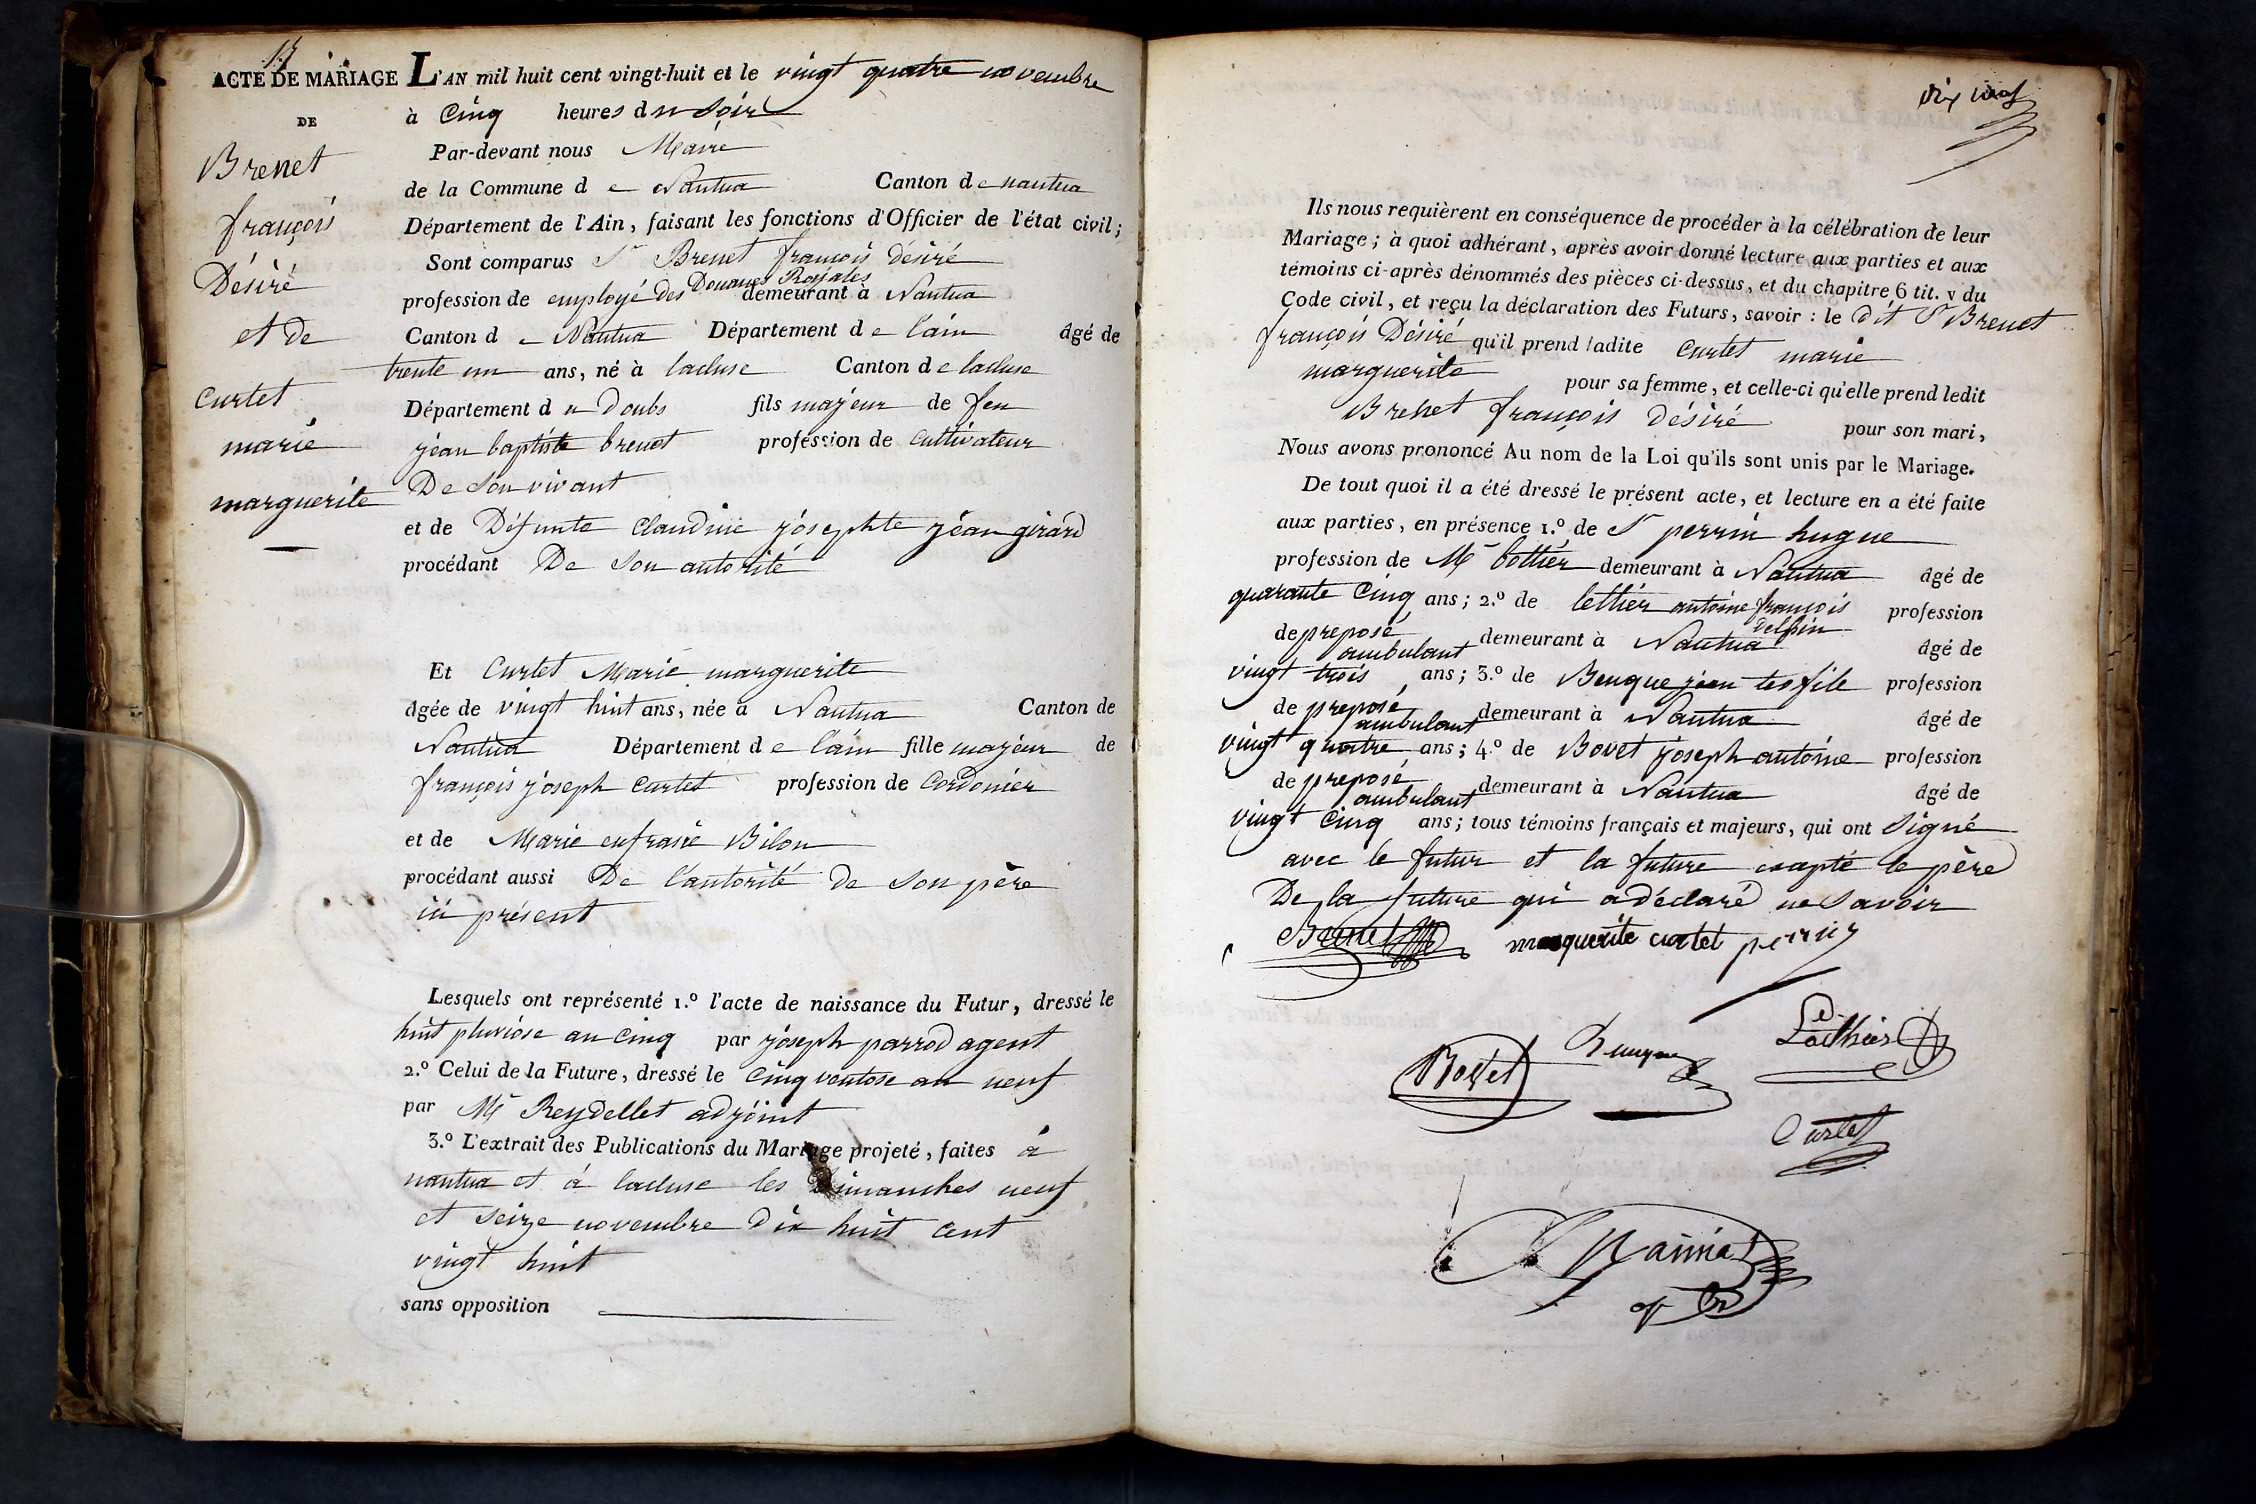 ACTE DE MARIAGE
DE
Brenet
françois
Désiré
et de
Curtet
marie
marguerite
L'AN mil huit cent vingt-huit et le vingt quatre novembre
à Cinq heures du Soir
Par-devant nous Maire
de la Commune de Nantua Canton de nantua
Département de l'Ain, faisant les fonctions d'Officier de l'état civil;
Sont comparus Sr Brenet françois désiré
profession de employé des Douanes Royales demeurant à Nantua
Canton de Nantua Département de l'ain âgé de
trente un ans, né à lacluse Canton de lacluse
Département du Doubs fils majeur de feu
jean baptiste brenet profession de Cultivateur
De Son vivant
et de Défunte Claudine josephte jean girard
procédant De Son autorité
Et Curtet Marie marguerite
âgée de vingt huit ans, née à Nantua Canton de
Nantua Département de l'ain fille majeur de
françois joseph Curtet profession de Cordonier
et de Marie eufrasie Bilon
procédant aussi De l'autorité de Son père
ici présent
Lesquels ont représenté 1.º l'acte de naissance du Futur, dressé le
huit pluviose an Cinq par joseph parrod agent
2.º Celui de la Future, dressé le Cinq ventose an neuf
par Mr Reydellet adjoint
3.º L'extrait des Publications du Mariage projeté, faites à
nantua et à lacluse les Dimanches neuf
et Seize novembre Dix huit Cent
vingt huit
sans opposition
Dix neuf
Ils nous requièrent en conséquence de procéder à la célébration de leur
Mariage; à quoi adhérant, après avoir donné lecture aux parties et aux
témoins ci-après dénommés des pièces ci-dessus, et du chapitre 6 tit. v du
Code civil, et reçu la déclaration des Futurs, savoir: le dit Sr Brenet
françois Désiré qu'il prend ladite Curtet marie
marguerite pour sa femme, et celle-ci qu'elle prend ledit
Brenet françois désiré pour son mari,
Nous avons prononcé Au nom de la Loi qu'ils sont unis par le Mariage.
De tout quoi il a été dressé le présent acte, et lecture en a été faite
aux parties, en présence 1.º de Sr perrin hugue
profession de Mr bottier demeurant à Nantua âgé de
quarante Cinq ans; 2.º de lettier antoine françois delfin profession
de preposé ambulant demeurant à Nantua âgé de
vingt trois ans; 3.º de Beuque jean tesfile profession
de preposé ambulant demeurant à Nantua âgé de
vingt quatre ans; 4.º de Bovet joseph antoine profession
de preposé ambulant demeurant à Nantua âgé de
vingt Cinq ans; tous témoins français et majeurs, qui ont Signé
avec le futur et la future exapté le père
De la future qui a déclaré ne Savoir
Brenet marguerite curtet perrin
Bovet Beuque
Curtet